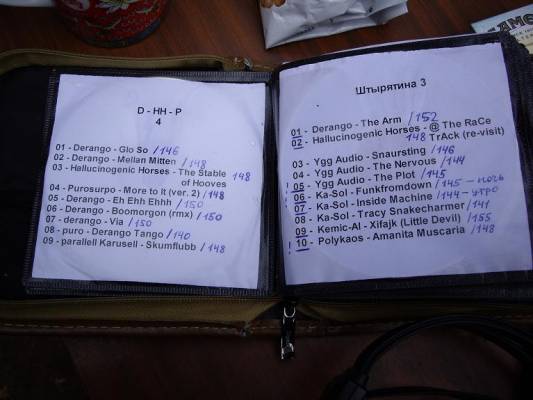 D - HH - P
4
01 - Derango - Glo So /146
02 - Derango - Mellan Mitten /148
03 - Hallucinogenic Horses - The Stable 148
of Hooves
04 - Purosurpo - More to It (ver. 2) /148
05 - Derango - Eh Ehh Ehhh /150
06 - Derango - Boomorgon (rmx) /150
07 - derango - Via /150
08 - puro - Derango Tango /140
09 - parallell Karusell - Skumflubb /148
Штырятина 3
01 - Derango - The Arm /152
02 - Hallucinogenic Horses - @ The RaCe
148 TrAck (re-visit)
03 - Ygg Audio - Snaursting /146
04 - Ygg Audio - The Nervous /144
! 05 - Ygg Audio - The Plot /145
06 - Ka-Sol - Funkfromdown /145 - ночь
! 07 - Ka-Sol - Inside Machine /144 - утро
08 - Ka-Sol - Tracy Snakecharmer /141
09 - Kemic-Al - Xifajk (Little Devil) /155
! 10 - Polykaos - Amanita Muscaria /148
CAMEL